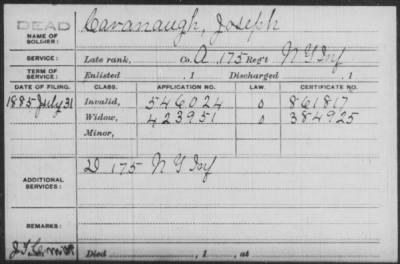 DEAD
NAME OF SOLDIER: Cavanaugh, Joseph
SERVICE: Late rank, Co. A, 175 Reg't N Y Inf
TERM OF SERVICE: Enlisted , 1 Discharged , 1
DATE OF FILING. CLASS. APPLICATION NO. LAW. CERTIFICATE NO.
1885 July 31 Invalid, 546024 861817
Widow, 423951 384925
Minor,
ADDITIONAL SERVICES: D 175 N Y Inf
REMARKS:
Died , 1 , at